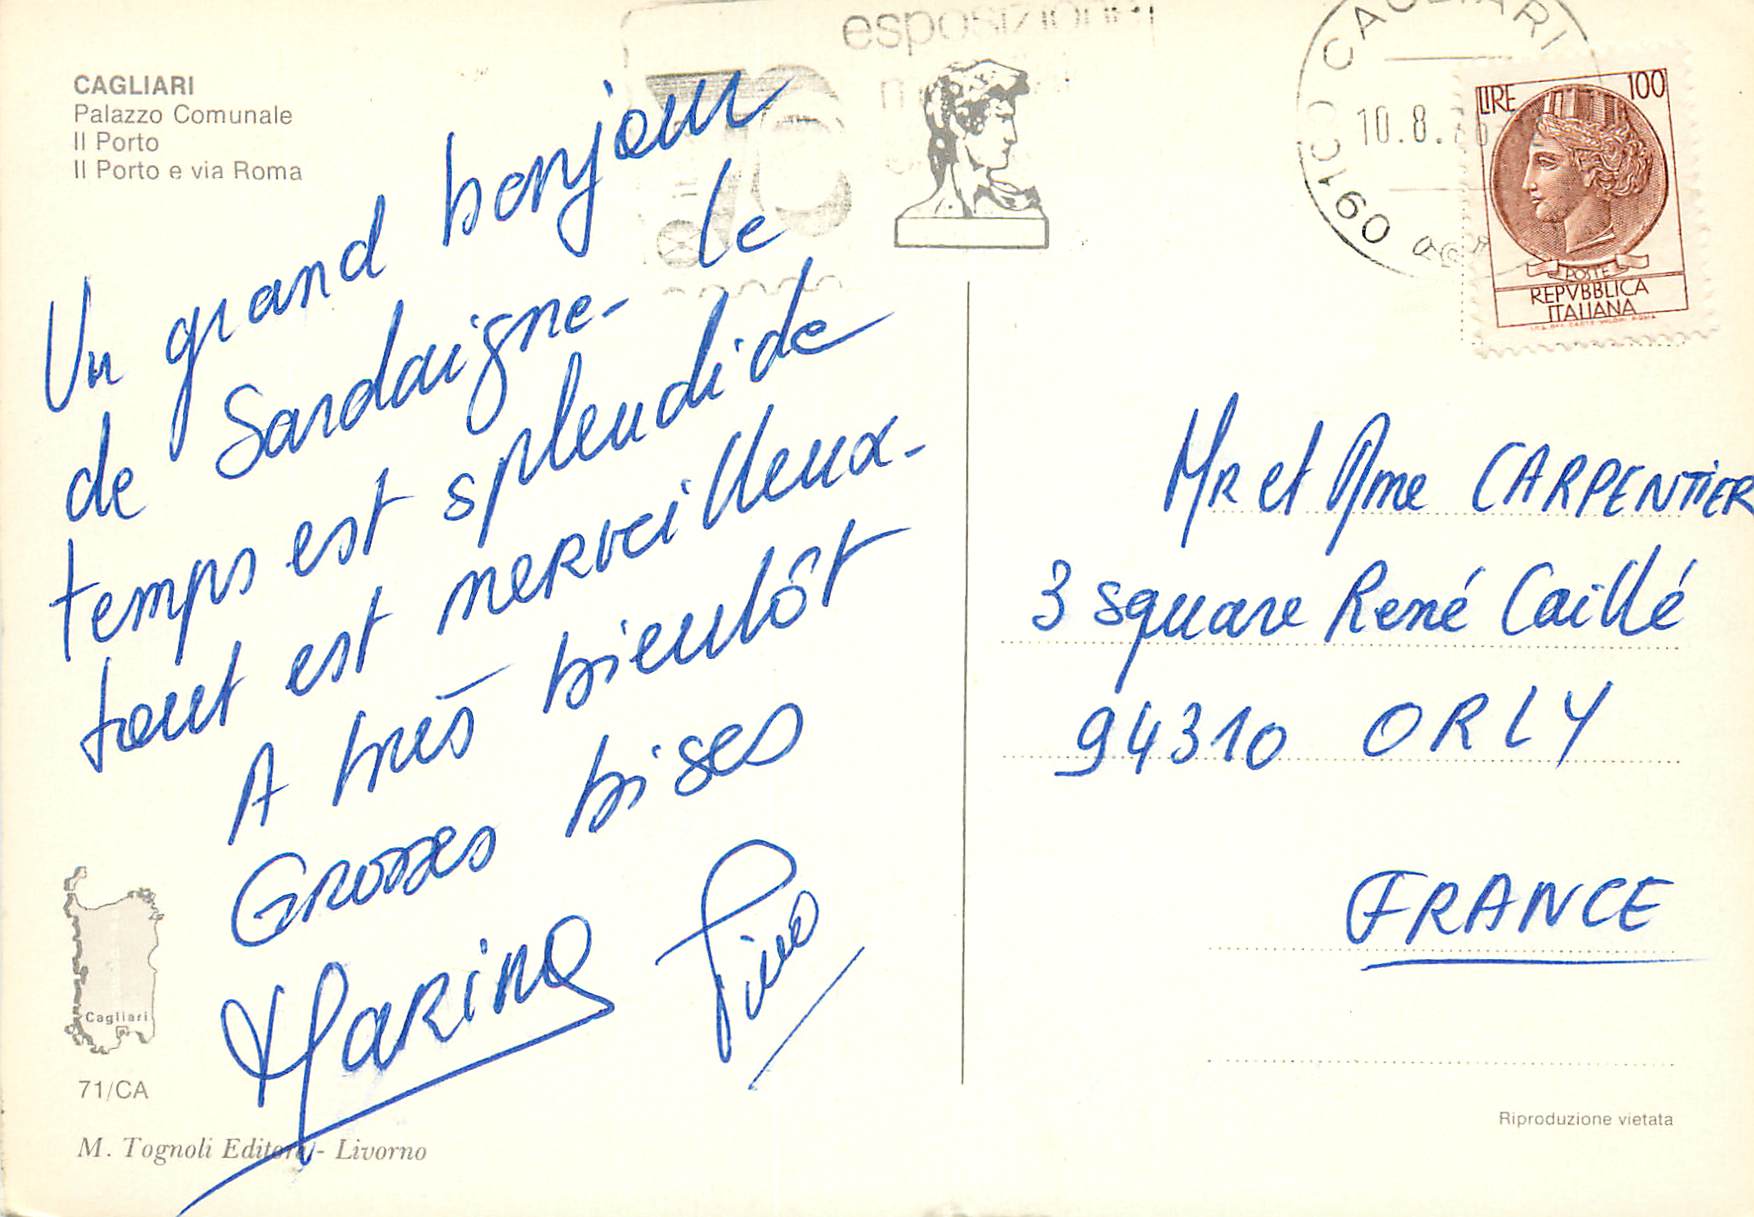 CAGLIARI
Palazzo Comunale
Il Porto
Il Porto e via Roma
Un grand bonjour
de Sardaigne - le
temps est splendide
tout est merveilleux -
A très bientôt
Grosses bises
MARINA Pino
Cagliari
71/CA
M. Tognoli Editore - Livorno
esposizione
CAGLIARI
10.8.76
LIRE 100
POSTE
REPVBBLICA
ITALIANA
MR et Mme CARPENTIER
3 square René Caillé
94310 ORLY
FRANCE
Riproduzione vietata